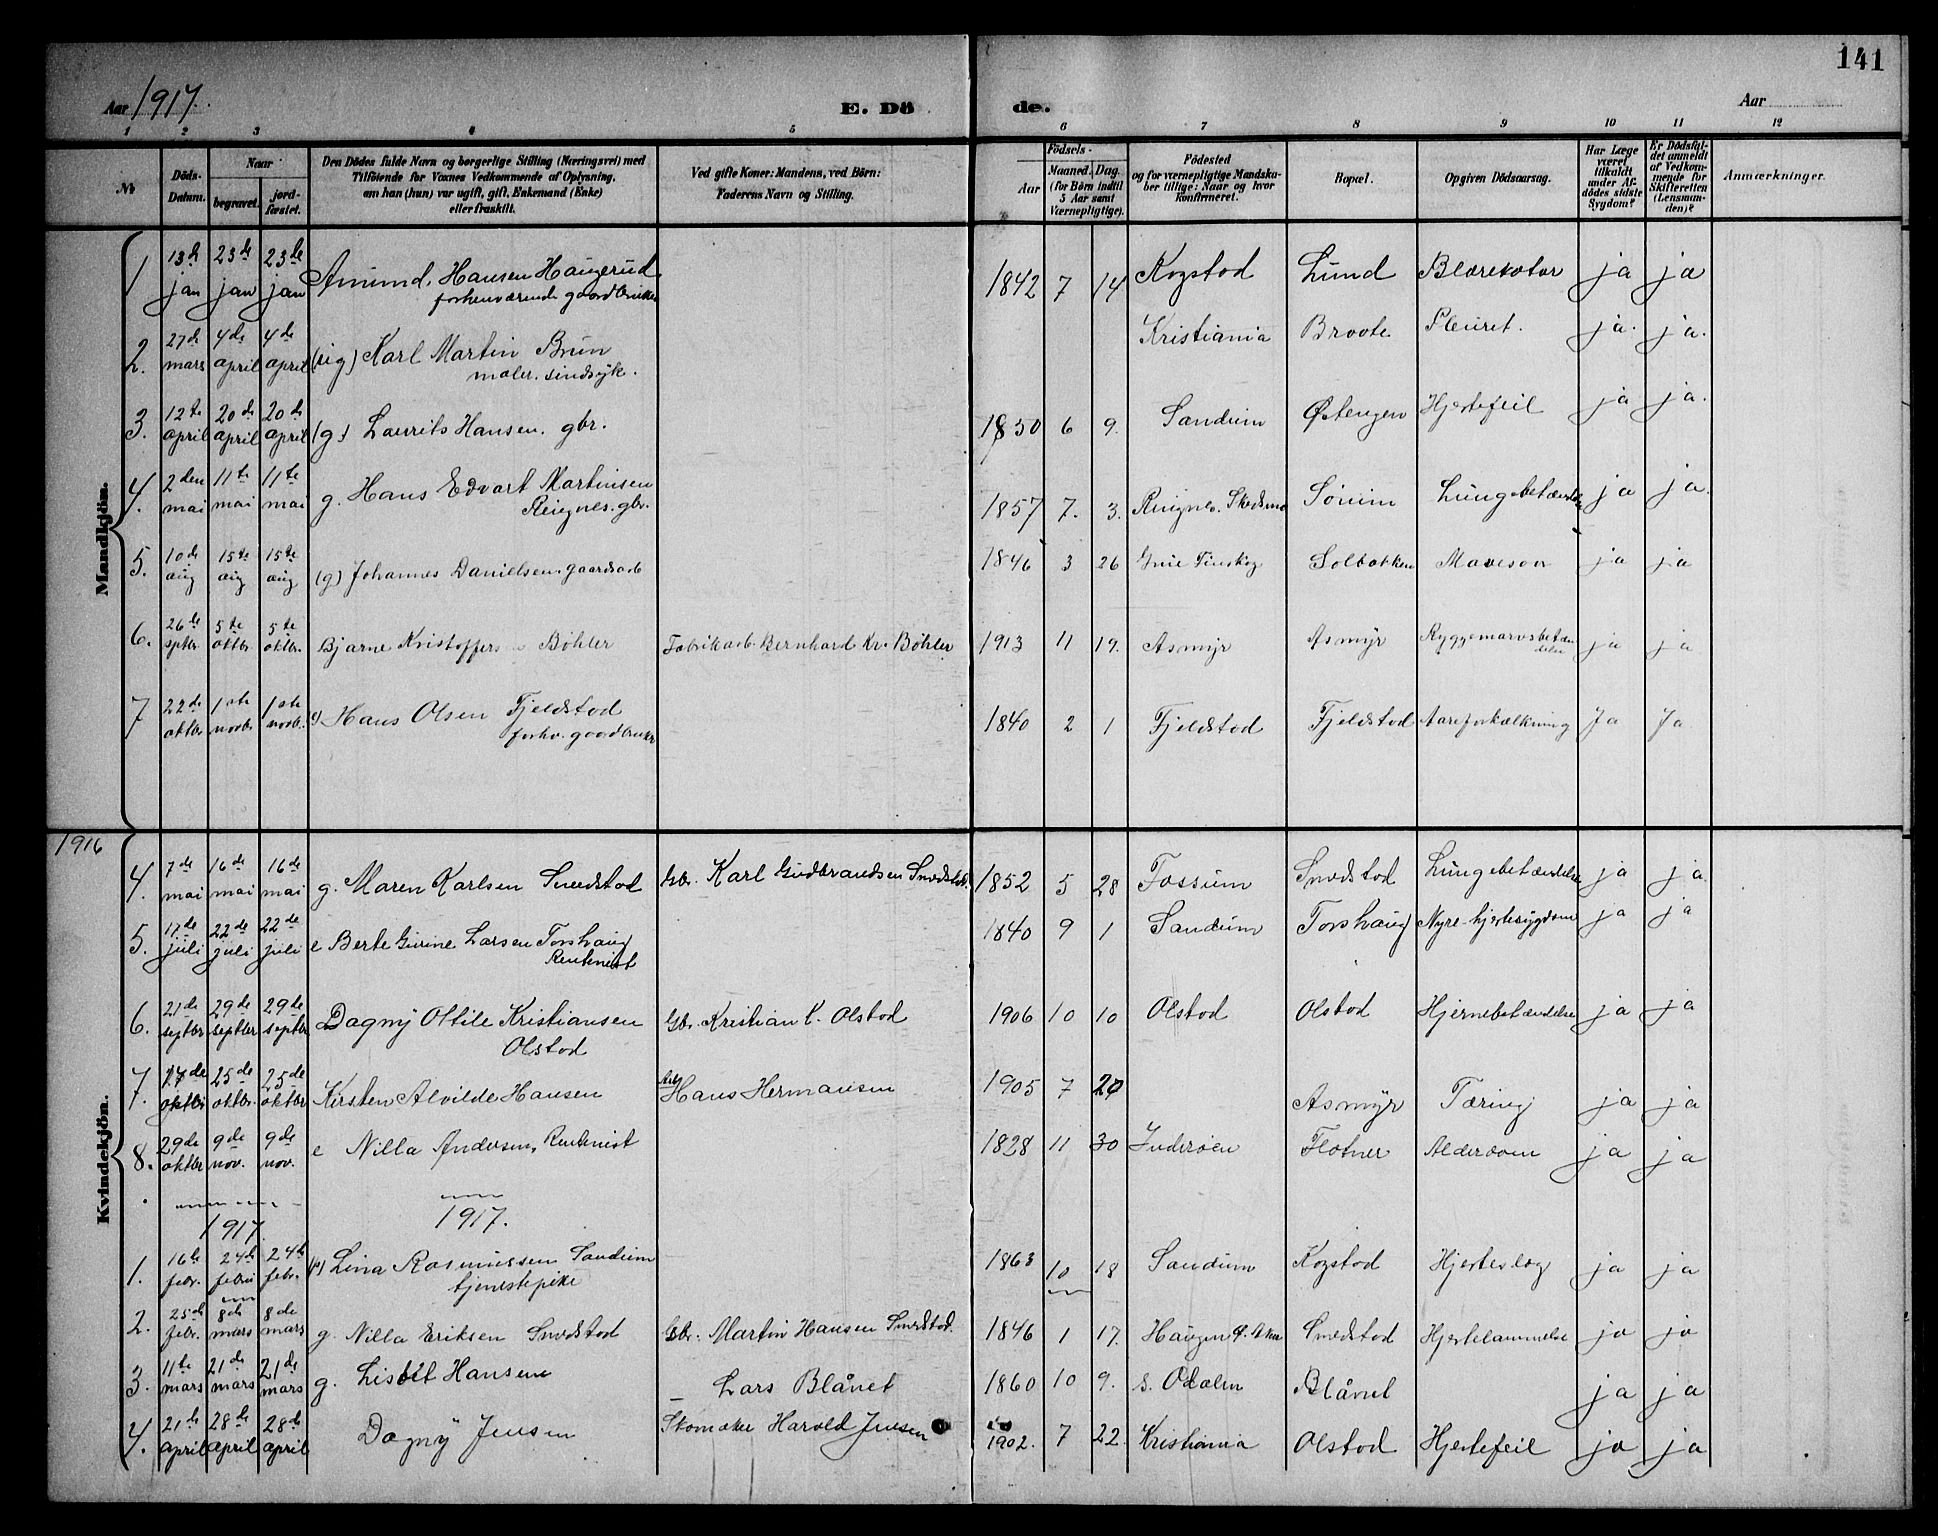 141
Aar 1917.
E. Dö de.
Aar
1 2 3 4 5 6 7 8 9 10 11 12
№
Döds-Datum.
Naar
begravet.
jord-fæstet.
Den Dödes fulde Navn og borgerlige Stilling (Næringsvei) med
Tilföiende for Voxnes Vedkommende af Oplysning,
om han (hun) var ugift, gift, Enkemand (Enke)
eller fraskilt.
Ved gifte Koner: Mandens, ved Börn:
Faderens Navn og Stilling.
Födsels-
Aar
Maaned. Dag.
(for Börn indtil
5 Aar samt
Værnepligtige).
Födested
og for værnepligtige Mandska-
ber tillige: Naar og hvor
konfirmeret.
Bopæl.
Opgiven Dödsaarsag.
Har Læge
været
tilkaldt
under Af-
dödes sidste
Sygdom?
Er Dödsfal-
det anmeldt
af Vedkom-
mende for
Skifteretten
(Lensman-
den)?
Anmærkninger.
Mandkjön.
1 13de jan 23de jan 23de jan Amund Hansen Haugerud 1842 7 14 Kogstad Lund Blærekatar ja ja
forhenværende gaardbruker
2. 27de mars 4de april 4de april (ug) Karl Martin Brun Kristiania Braate Pleuret. ja. ja.
maler. sindsyk.
3. 12te april 20de april 20de april (g) Laurits Hansen. gbr. 1850 6 9. Sandum Østengen Hjertefeil ja ja.
4. 2den mai 11te mai 11te mai g. Hans Edvart Martinsen 1857 7. 3. Ringnes. Skedsmo Sørum Lungebetændelse ja ja.
Ringnes. gbr.
5. 10de aug 15te aug 15te aug (g) Johannes Danielsen. gaardsarb 1846 3 26 Grue Finskog Solbakken Mavesaar ja ja
6. 26de septbr 5te oktbr. 5te oktbr. Bjarne Kristoffersen Bøhler Fabrikarb. Bernhard Kr. Bøhler 1913 11 19. Asmyr Asmyr Ryggemarvsbetændelse ja ja
7 22de oktbr 1ste novbr. 1ste novbr. Hans Olsen Fjeldstad 1840 2 1 Fjeldstad Fjeldstad Aareforkalkning Ja Ja
forhv. gaardbruker
Kvindekjön.
1916
4. 7de mai 16de mai 16de mai g. Maren Karlsen Smedstad Gbr. Karl Gudbrandsen Smedstad. 1852 5 28 Fossum Smedstad Lungebetændelse ja ja.
5. 17de juli 22de juli 22de juli e Berte Gurine Larsen Torshaug 1840 9 1 Sandum Torshaug Nyre-hjertesygdom ja ja
Rentenist
6. 21de septbr 29de septbr 29de septbr Dagny Ottile Kristiansen Gbr. Kristian K. Olstad 1906 10 10 Olstad Olstad Hjernebetændelse ja ja
Olstad
7. 17de oktbr 25de oktbr. 25de oktbr Kirsten Alvilde Hansen Arb Hans Hermansen 1905 7 20 Asmyr Tæring ja ja
8. 29de oktbr 9de nov. 9de nov. e Nilla Andersen, Rentenist 1828 11 30 Inderøen Flatner Alderdom ja ja
1917 1917.
1. 16de febr. 24de febru 24de febr. Lina Rasmussen Sandum 1863 10 18 Sandum Kogstad Hjerteslag ja ja
tjenestepike
2. 25de febr. 8de mars 8de mars g. Nilla Eriksen Smedstad Gbr. Martin Hansen Smedstad. 1846 1 17. Haugen Smedstad Hjertelammelse ja ja
3. 11te mars 21de mars 21de mars g. Lisbet Hansen — Lars Blånet 1860 10 9. S. Odalen Blånet ja ja
4. 21de april 28de april 28de april Dagny Jensen Skomaker Harald Jensen 1902. 7 22. Kristiania Olstad Hjertefeil ja ja